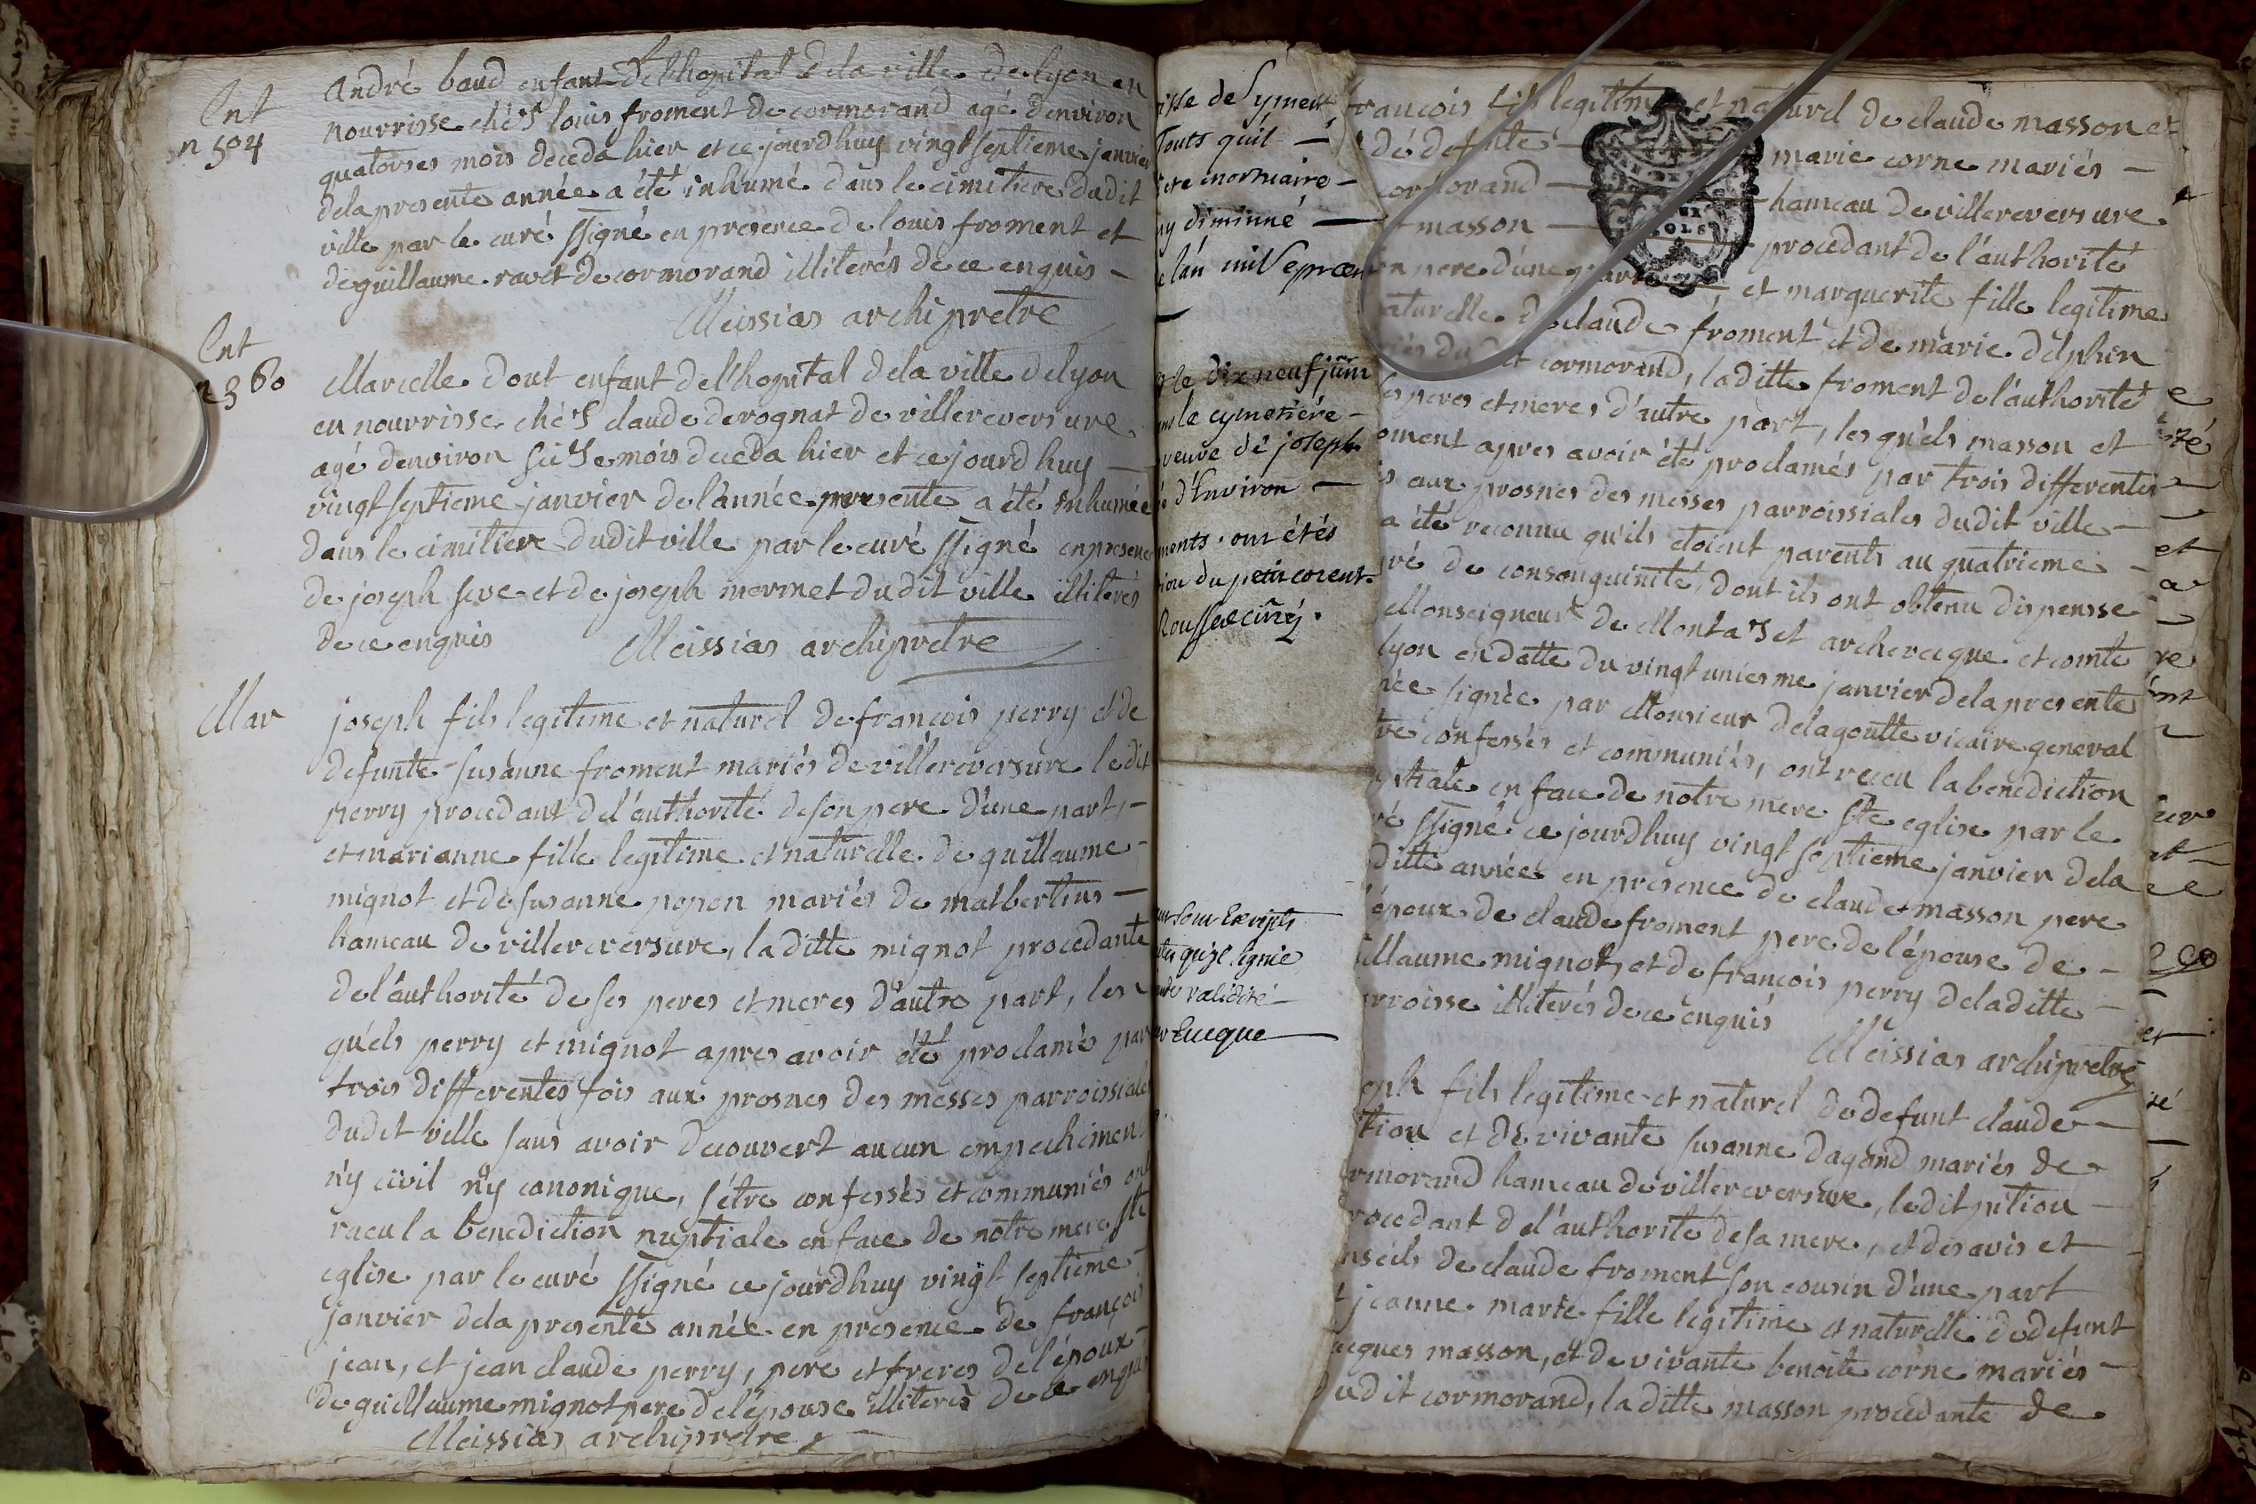 Ent
n 504
André baud enfant de l'hopital de la ville de lyon en
nourrisse chés louis froment de cormorand agé d'environ
quatorses mois deceda hier et ce jourdhuy vingt septieme janvier
dela presente année a été inhumé dans le cimitiere dudit
ville par le curé ssigné en presence de louis froment et
de guillaume ravet de cormorand illiterés de ce enquis -
Meissias archipretre
Ent
n 360
Marcelle dout enfant del'hopital dela ville delyon
en nourrisse chés claude derognat de villereversure
agé denviron seise mois deceda hier et ce jourd huy -
vingt septieme janvier de l'année presente a été inhumée
dans le cimitiere dudit ville par le curé ssigné en presence
de joseph seve et de joseph mermet du dit ville illiterés
de ce enquis Meissias archipretre
Mar
joseph fils legitime et naturel de francois perry et de
defunte susanne froment mariés de villereversure le dit
perry procedant del'authorité de son pere d'une part, -
et marianne fille legitime et naturelle de guillaume -
mignot et de susanne popon mariés de matbertins -
hameau de villereversure, la ditte mignot procedante
de l'authorité de ses peres et meres d'autre part, les
qu'els perry et mignot apres avoir été proclamés par
trois differentes fois aux prosnes des messes parroissiales
dudit ville sans avoir decouvert aucun empechiment
n'y civil n'y canonique, s'être confessés et communiés ont
racu la benediction nuptiale en face de notre mere ste
eglise par le curé ssigné ce jourdhuy vingt septieme -
janvier dela presente année en presence de françois
jean, et jean claude perry, pere et freres del'epoux -
de guillaume mignot pere del'épouse illiterés de ce enquis
Meissias archipretre
Touts qu'il -
mortuaire -
diminué -
l'an mil sept
le dix neuf juin
la cymetiére -
veuve de joseph
d'Environ -
ments ont étés
du petit corent -
Rousset curé.
sous Escripts
qu'il signée
validité -
Eucque
rancois fils legitime et naturel de claude masson et
dé defunte - marie corne mariés -
cormorand - hameau de villereversure
masson - procedant de l'authorité
n pere d'une part - et marguerite fille legitime
aturelle de claude froment et de marie delphin
riés dudit cormorand, la ditte froment de l'authorité
s peres et meres d'autre part, les qu'els masson et
oment apres avoir été proclamés par trois differentes
is aux prosnes des messes parroissiales dudit ville -
a été reconnu qu'ils etoient parents au quatrieme -
ré de consanguinité, dont ils ont obtenu dispensse
Monseigneur de Montaset archeveque et comte
lyon en datte du vingt uniesme janvier dela presente
née signée par Monsieur delagoutte vicaire general
tre confessés et communiés, ont receu la benediction
ptiale en face de notre mere ste eglise par le
ré ssigné ce jourdhuy vingt septieme janvier dela
ditte année en presence de claude masson pere
époux de claude froment pere de l'épouse de -
illaume mignot, et de françois perry deladitte -
rroisse illiterés de ce enquis
Meissias archipretre
eph fils legitime et naturel de defunt claude -
tiou et de vivante susanne dagand mariés de -
rmorand hameau de villereversure, ledit pitiou -
rocedant del'authorité de sa mere, et des avis et
nseils de claude froment son cousin d'une part
jeanne marie fille legitime et naturelle de defunt
acques masson, et de vivante benoite corne mariés -
dudit cormorand, la ditte masson procedante de